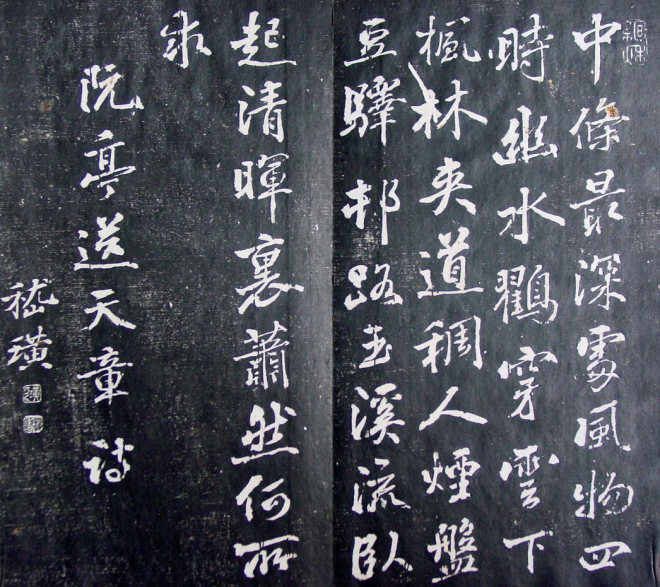 中條最深處風物四
時幽水鸛穿雲下
楓林夾道稠人煙盤
豆驛邨路玉溪流臥
起清暉裏蕭然何所
求
阮亭送天章詩
嵇璜